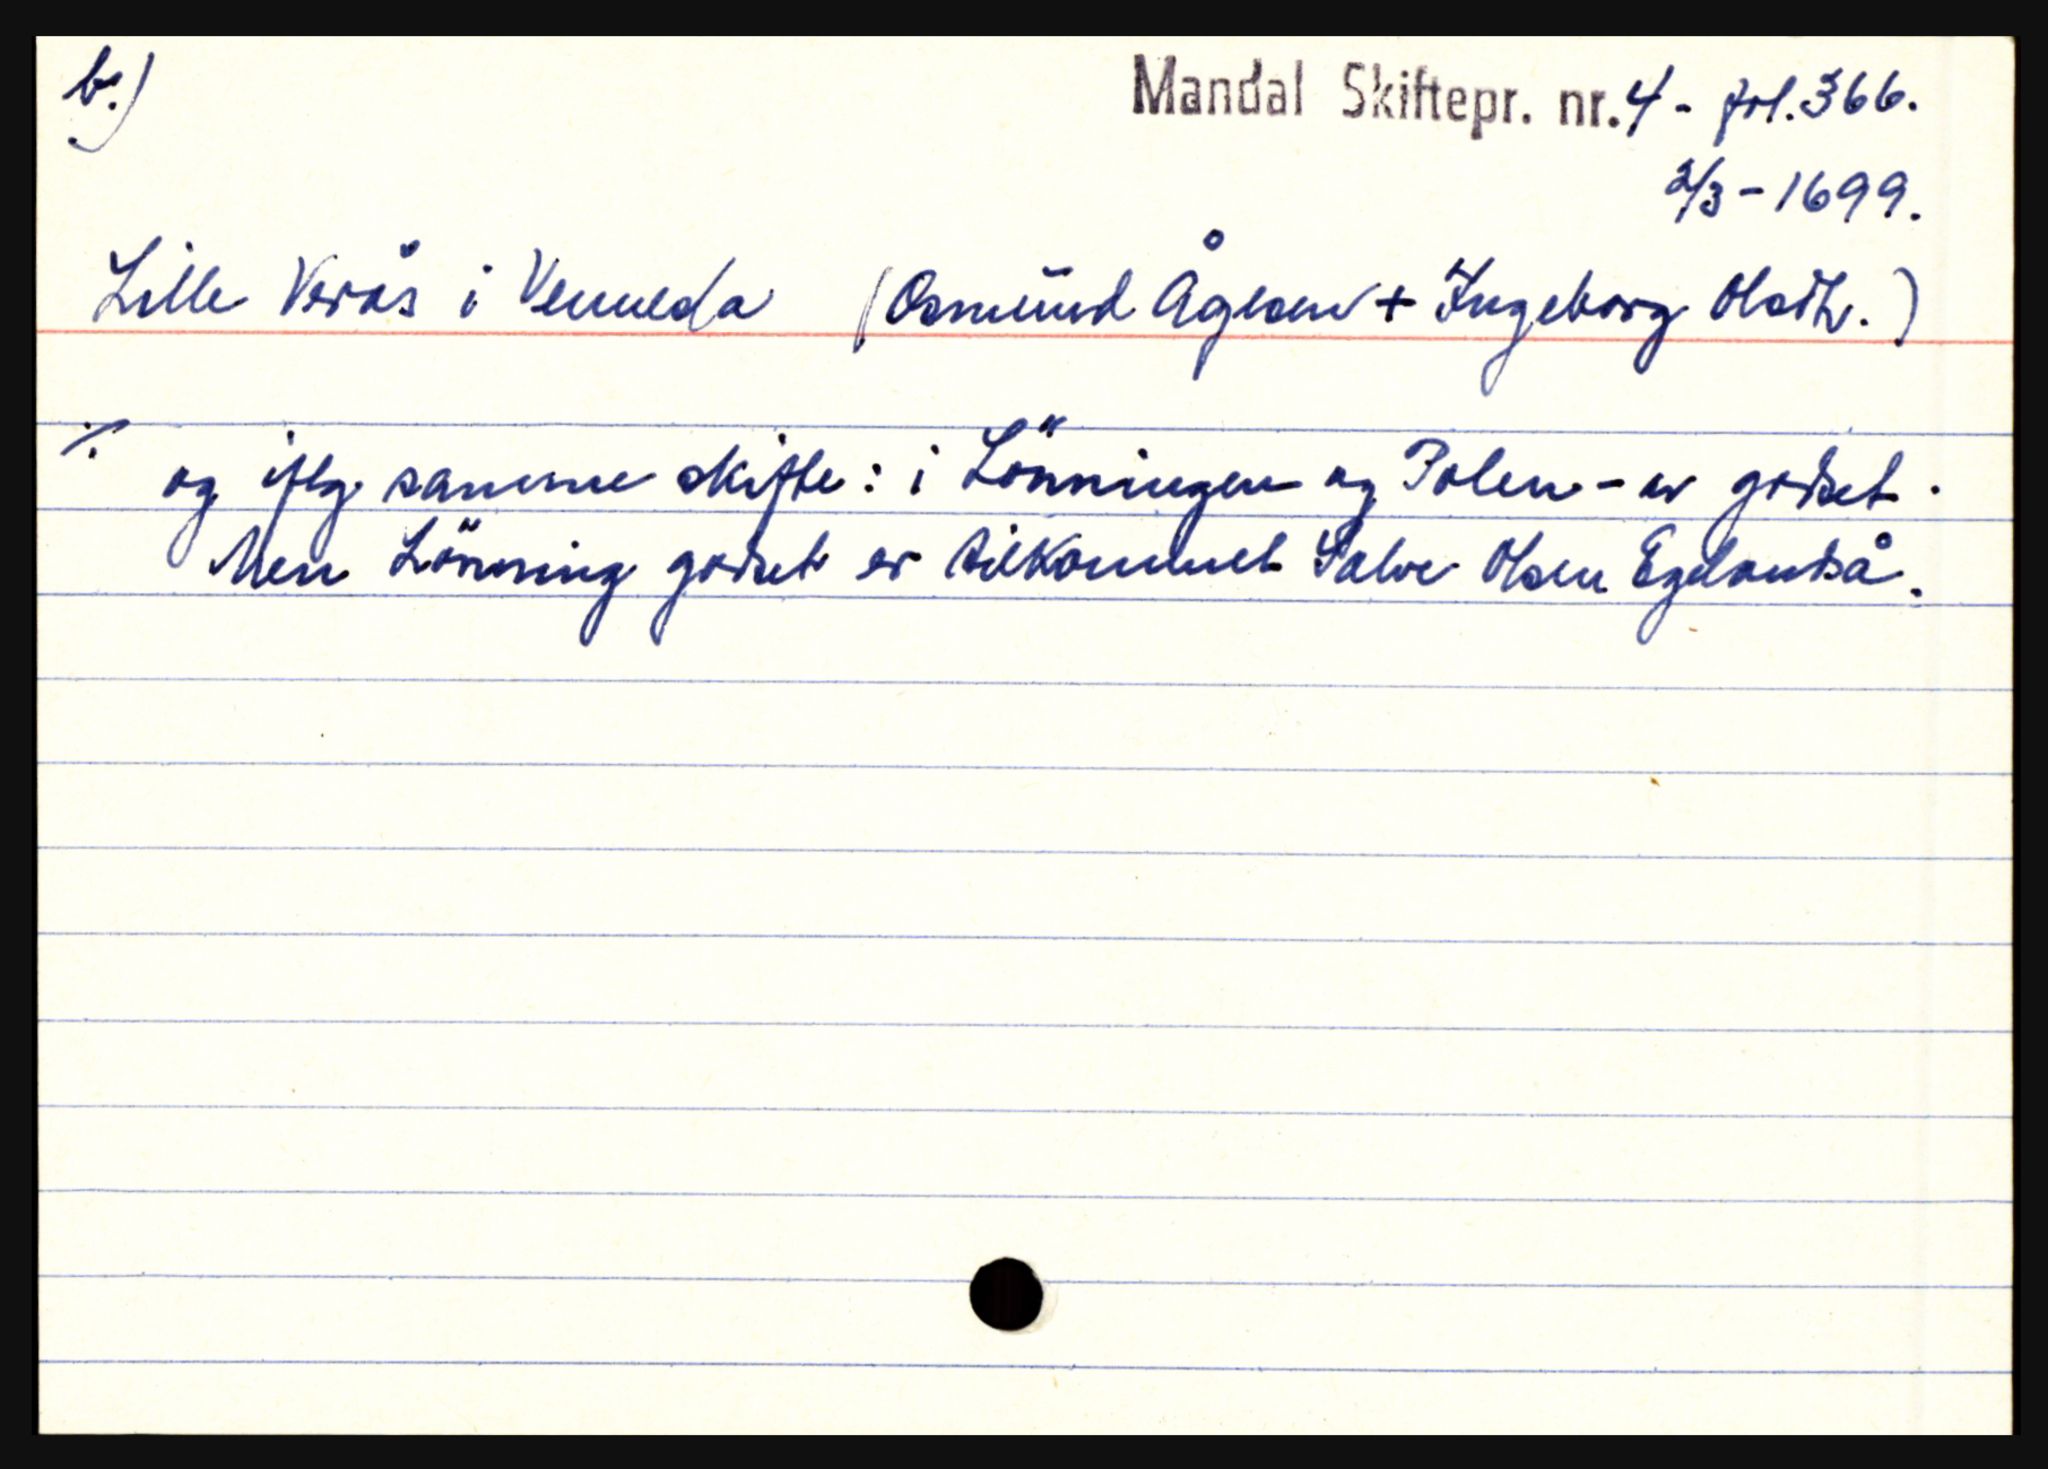 b.)
Mandal Skiftepr. nr. 4 - fol. 366.
2/3 - 1699.
Lille Verås i Venneda (Osmund Ågesen + Ingeborg Olsdtr.)
·/. og iflg. samme skifte: i Lönningen og Polen - av godset.
Men Lönning godset er tilkommet Salve Olsen Eglandså.